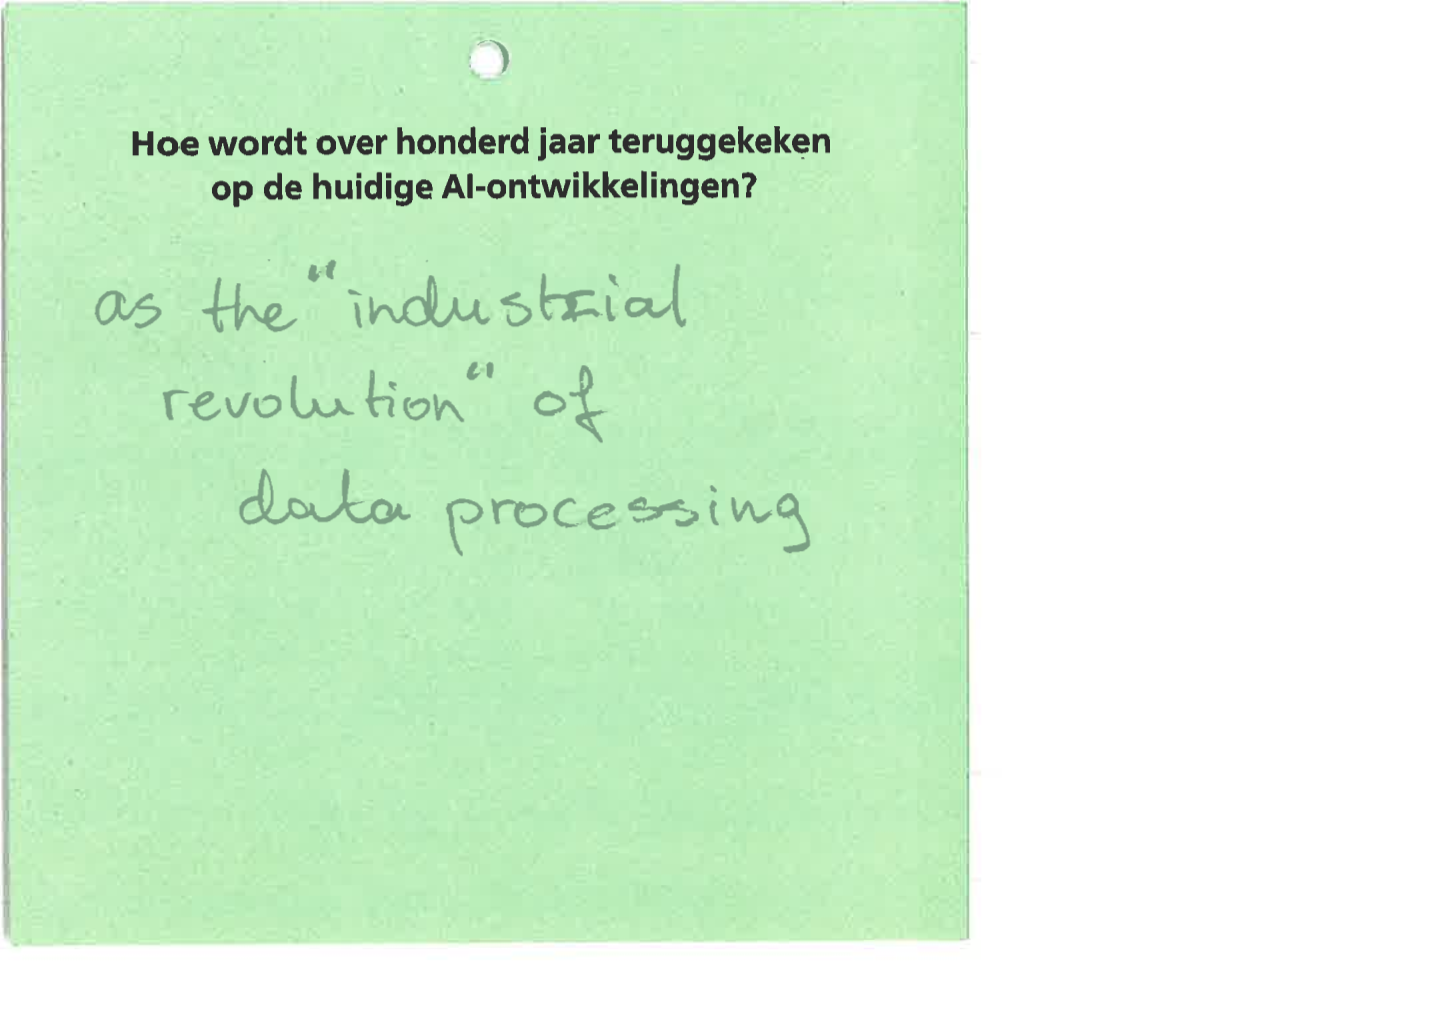 Hoe wordt over honderd jaar teruggekeken
op de huidige AI-ontwikkelingen?
as the "industrial
revolution" of
data processing